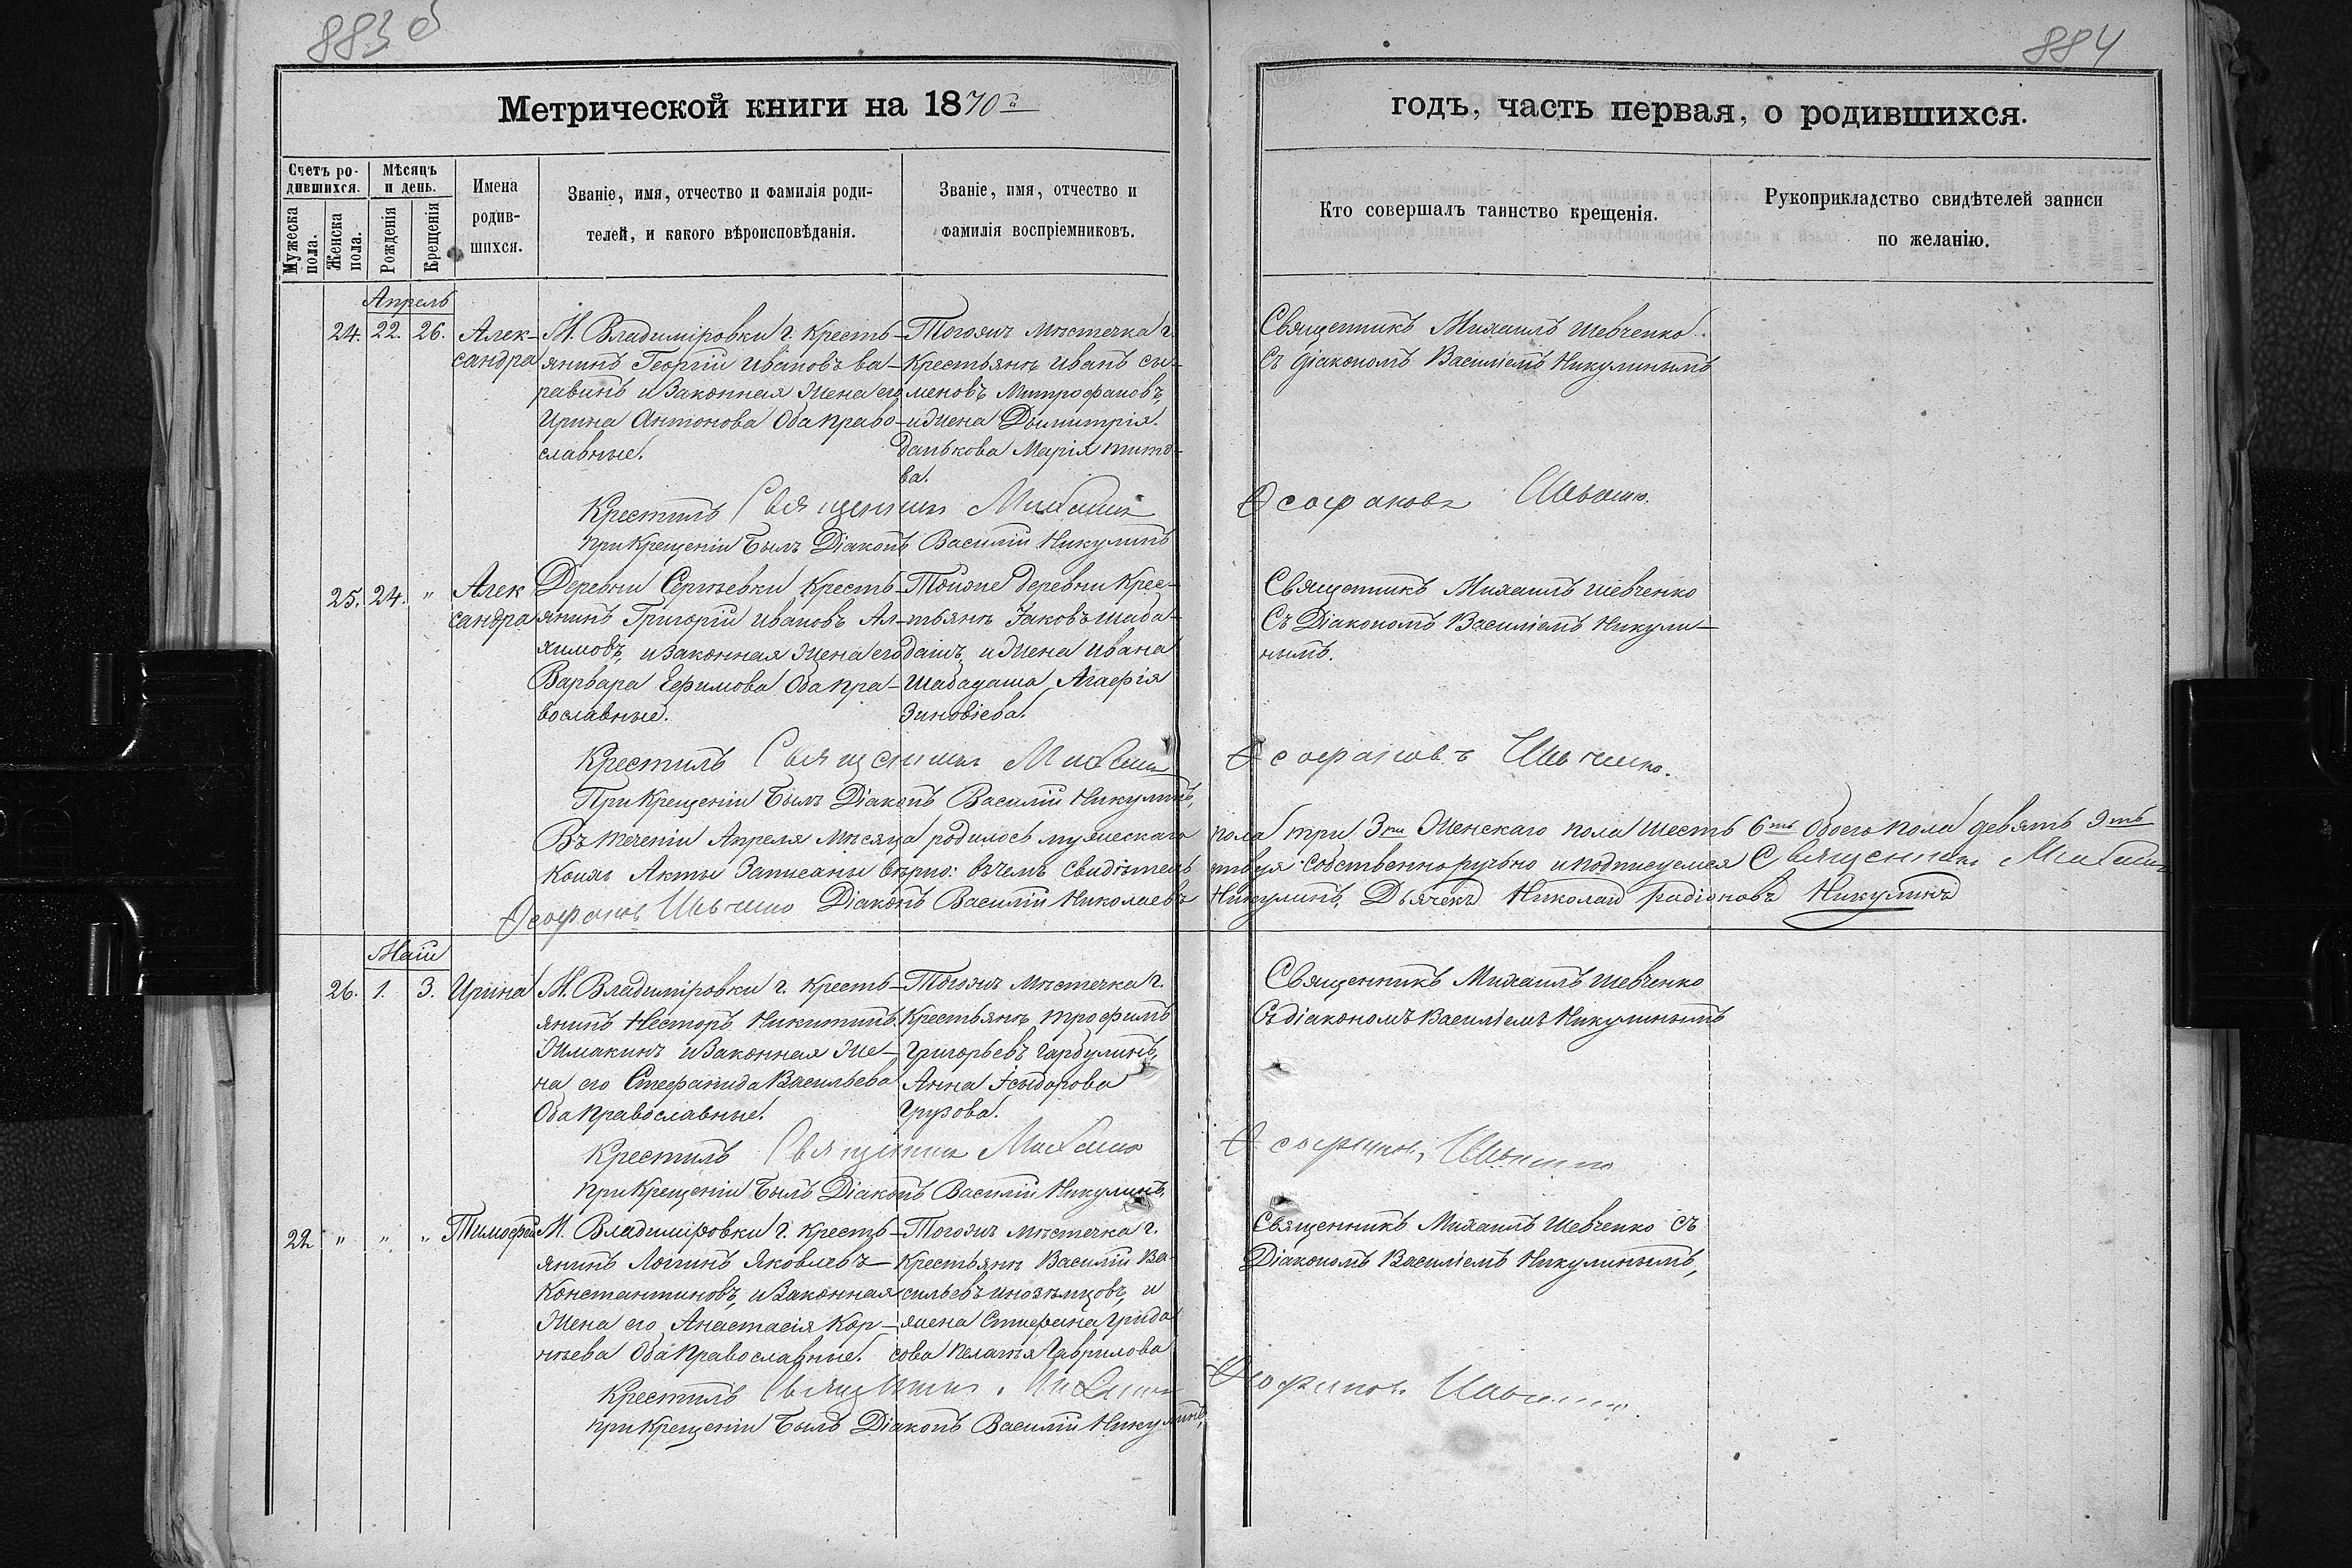 883 об
884
Метрической книги на 1870й
годъ, часть первая, о родившихся.
Счетъ ро-
дившихся.
Мужеска
пола.
Женска
пола.
Мѣсяцъ
и день.
Рожденія
Крещенія
Имена
родив-
шихся.
Званіе, имя, отчество и фамилія роди-
телей, и какого вѣроисповѣданія.
Званіе, имя, отчество и
фамилія воспріемниковъ.
Кто совершалъ таинство крещенія.
Рукоприкладство свидѣтелей записи
по желанію.
Апрель
24. 22. 26.
Алек-
сандра
М. Владиміровки г. кресть-
янинъ Георгій Ивановъ Ва-
равинъ и Законная Жена его
Ирина Антонова Оба право-
славные.
Тогожъ мѣстечка г.
Крестьянъ Иванъ Си-
меновъ Митрофановъ,
и Жена Дымитрія
Данькова Марія Тито-
ва.
Священникъ Михаилъ Шевченко
Съ діакономъ Василіемъ Никулинымъ
Крестилъ Священникъ Михаилъ Феофановъ Шевченко.
При Крещеніи былъ Діаконъ Василій Никулинъ
25. 24. "
Алек
сандра
Деревни Сергѣевки Кресть-
янинъ Григорій Ивановъ Ал-
яимовъ, и Законная Жена его
Варвара Ефимова Оба пра-
вославные.
Тойже деревни Крес-
тьянъ Іаковъ Шаба-
дашъ, и Жена Ивана
Шабадаша Агафія
Зиновіева.
Священникъ Михаилъ Шевченко
Съ Діакономъ Василіемъ Никули-
нымъ.
Крестилъ Священникъ Михаилъ Феофановъ Шевченко.
При Крещеніи былъ Діаконъ Василій Никулинъ,
Въ теченіи Апреля мѣсяца родилось мужескаго пола три 3ри Женскаго пола шесть 6ть Обоего пола девять 9ть
Коихъ Акты Записаны вѣрно: въ чемъ свидѣтельствуя собственноручно и подписуемся Священникъ Михаилъ
Феофановъ Шевченко Діаконъ Василій Николаевъ Никулинъ, Дьячекъ Николай Радіоновъ Никулинъ
Май
26. 1. 3.
Ирина
М. Владиміровки г. Кресть-
янинъ Несторъ Никитинъ
Жмакинъ и Законная Же-
на его Стефанида Васильева
Оба православные.
Тогожъ мѣстечка г.
Крестьянъ Трофимъ
Григорьевъ Гарбулинъ,
Анна Ісыдорова
Грузова.
Священникъ Михаилъ Шевченко
Съ діакономъ Василіемъ Никулинымъ
Крестилъ Священникъ Михаилъ Феофановъ Шевченко
При Крещеніи былъ Діаконъ Василій Никулинъ,
22 " " "
Тимофей
М. Владиміровки г. Кресть-
янинъ Логинъ Яковлевъ
Константиновъ, и Законная
Жена его Анастасія Кор-
нѣева Оба православные.
Тогожъ мѣстечка г.
Крестьянъ Василій Ва-
сильевъ Иноземцовъ, и
жена Стефана Грида
сова Пелагія Гаврилова
Священникъ Михаилъ Шевченко съ
Діакономъ Василіемъ Никулинымъ,
Крестилъ Священникъ Михаилъ Феофановъ Шевченко.
При Крещеніи былъ Діаконъ Василій Никулинъ,